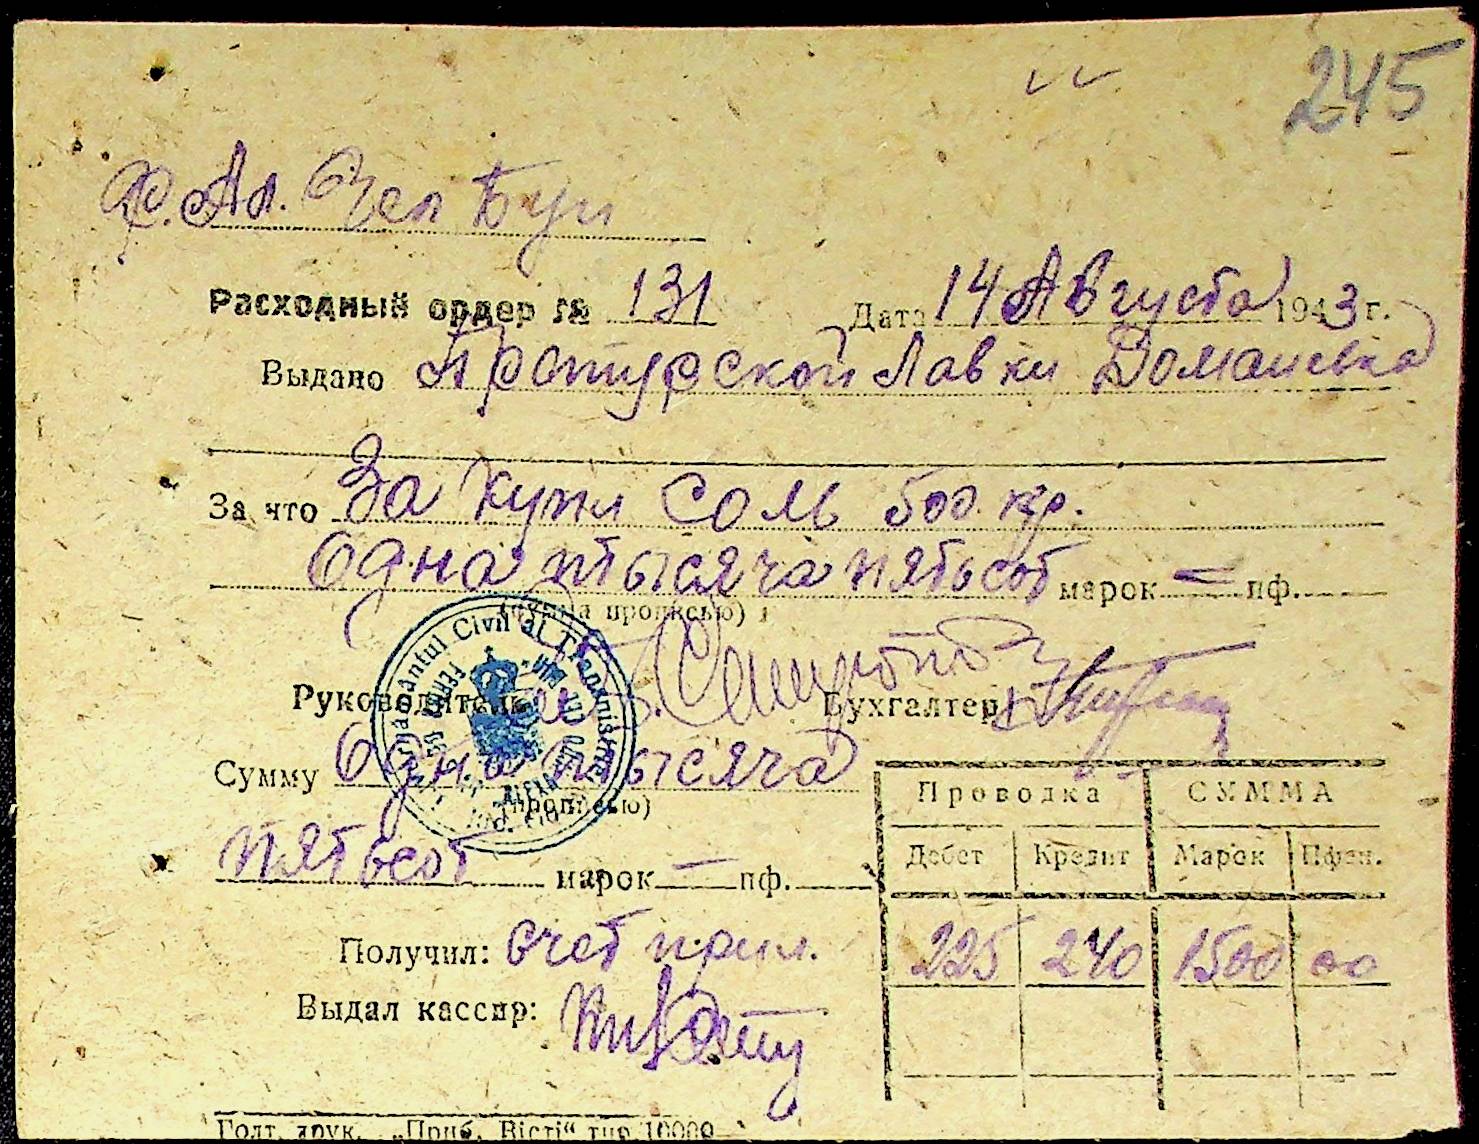 245
Расходный ордер № 131 Дата 14 Августа 1943 г.
Выдано Лавки Домашевка
За что За купл соль 500 кр.
Одна тысяча пятьсот марок — пф.
(сумма прописью)
Guvernamantul Civil al Transnistriei
Руководитель Бухгалтер
Сумму Одна тысяча
(прописью)
пятьсот марок — пф.
Проводка СУММА
Дебет Кредит Марок Пфен.
225 240 1500 00
Получил: счет прил.
Выдал кассир:
Голт. друк. „Приб. Вісті“ тир 10000